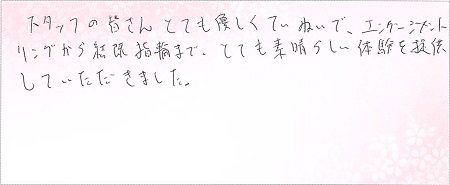 スタッフの皆さんとても優しくていねいで、エンゲージメント
リングから結婚指輪まで、とても素晴らしい体験を提供
していただきました。